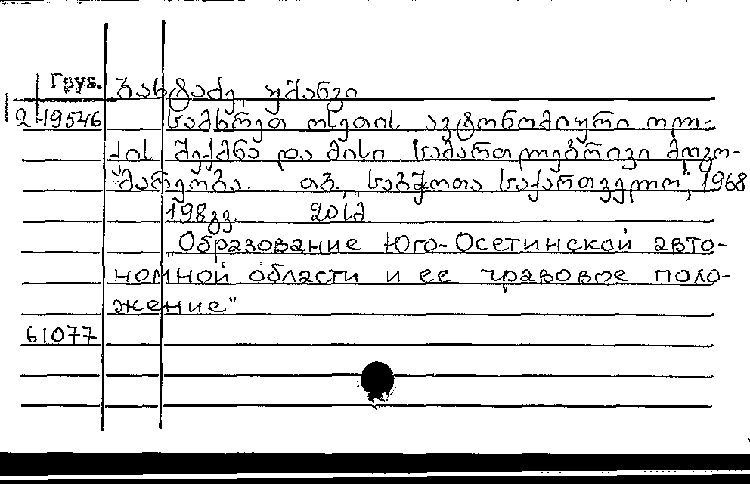 Груз.
2-19546
ბახტაძე, უშანგი
სამხრეთ ოსეთის ავტონომიური ოლ-
ქის შექმნა და მისი სამართლებრივი მდგო-
მარეობა. თბ., საბჭოთა საქართველო, 1968
198 გვ.
„Образование Юго-Осетинской авто-
номной области и ее правовое поло-
жение"
61077